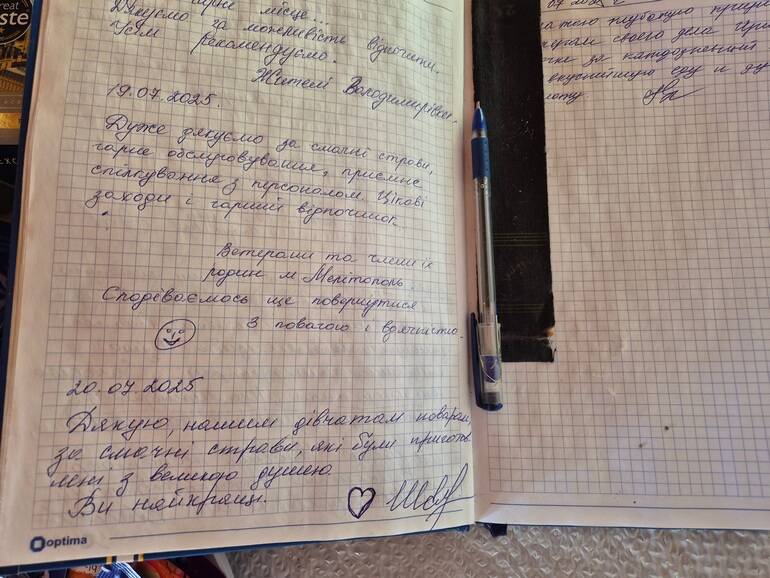 гарне місце...
Дякуємо за можливість відпочити.
Усім рекомендуємо.
Жителі Володимирівки.
19.07.2025.
Дуже дякуємо за смачні страви,
гарне обслуговування, приємне
спілкування з персоналом. Цікаві
заходи і гарний відпочинок.
Ветерани та члени їх
родин м Мелітополь.
Сподіваємось ще повернутися
З повагою і вдячністю
20.07.2025
Дякую, нашим дівчатам поварам,
за смачні страви, які були приготов
лені з великою душею.
Ви найкращі.
optima
глубокую
своего дела
за каждодневный
вкуснейшую еду и